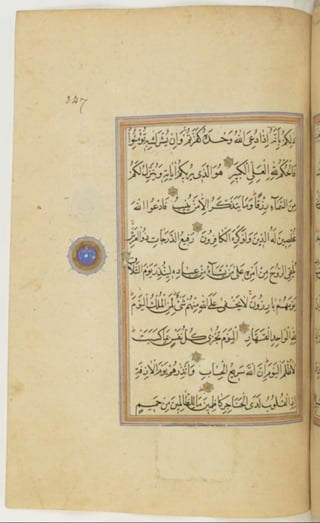 347
ذلكم بانه اذا دعى الله وحده كفرتم وان يشرك به تؤمنوا
فالحكم لله العلى الكبير هو الذى يريكم اياته وينزل لكم
من السماء رزقا وما يتذكر الا من ينيب فادعوا الله
مخلصين له الدين ولو كره الكافرون رفيع الدرجات ذو العرش
يلقى الروح من امره على من يشاء من عباده لينذر يوم التلاق
يوم هم بارزون لا يخفى على الله منهم شئ لمن الملك اليوم
لله الواحد القهار اليوم تجزى كل نفس بما كسبت
لا ظلم اليوم ان الله سريع الحساب وانذرهم يوم الازفة
اذ القلوب لدى الحناجر كاظمين ما للظالمين من حميم